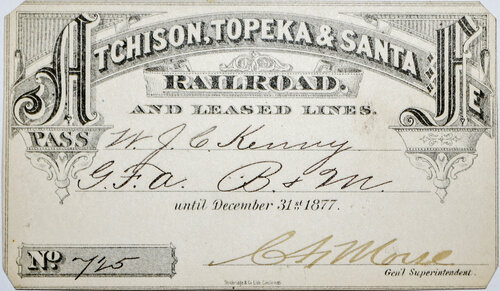 ATCHISON, TOPEKA & SANTA FE
RAILROAD.
AND LEASED LINES.
PASS W. J. C. Kenny
G.F.A. B. & M.
until December 31st 1877.
No 725
Gen'l Superintendent.